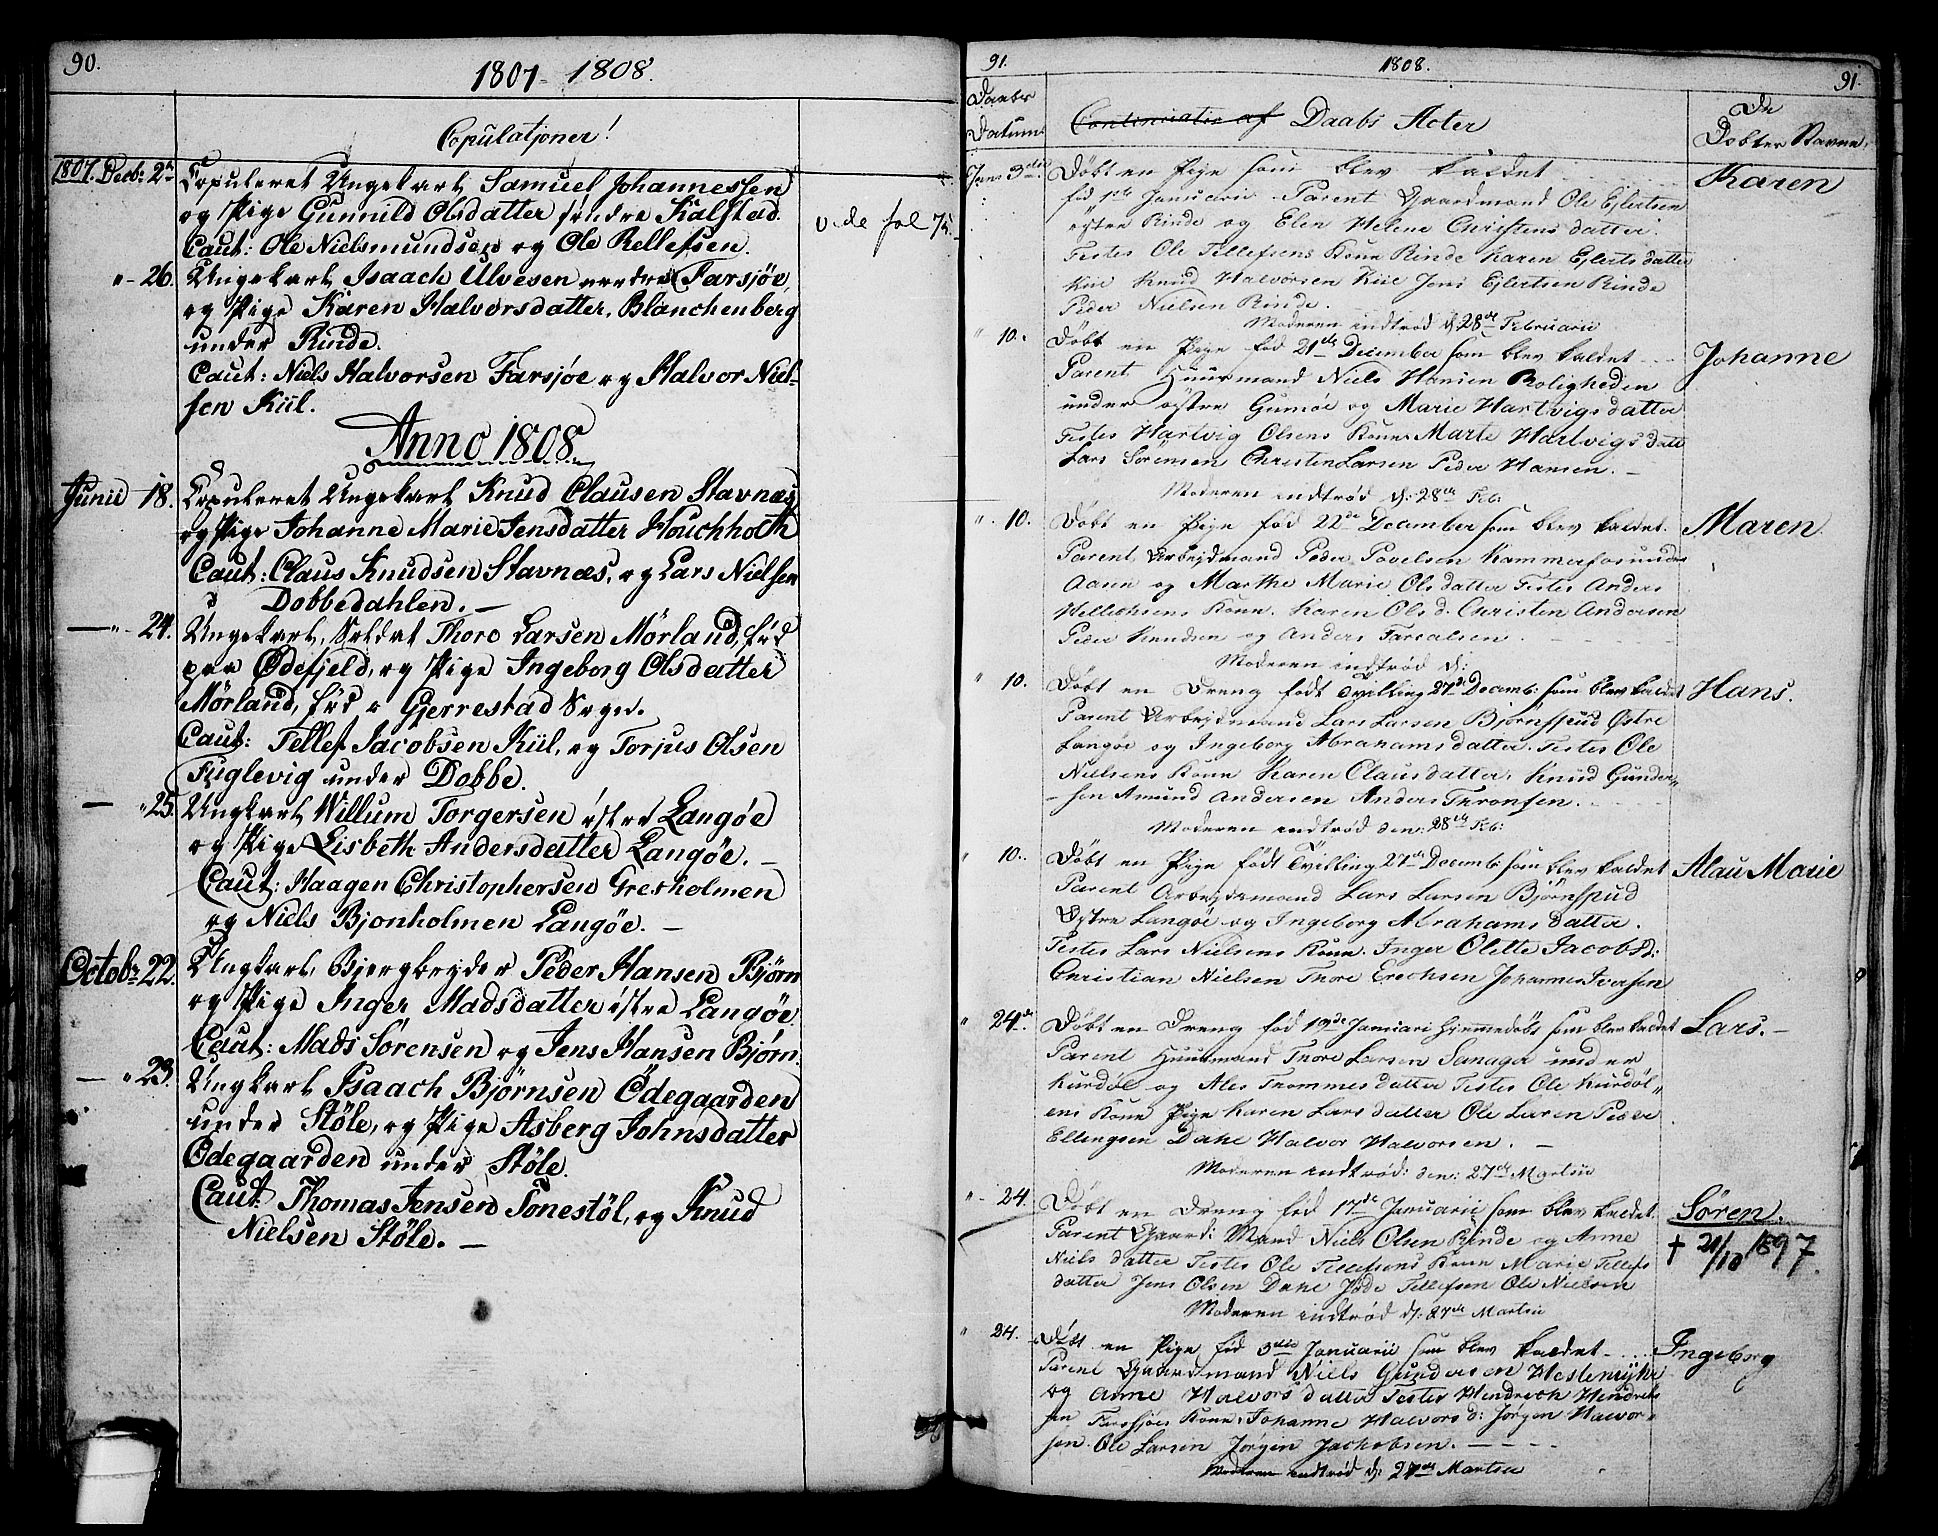 90.
1807- 1808.
Copulationer!
1807. Decb: 2den Copuleret Ungekarl Samuel Johannessen
og Pige Gunnild Olsdatter søndre Kalstad.
Caut: Ole Nielsmundsøn og Ole Rellefsen.
vide fol 75.
" - 26. Ungekarl Isaach Ulvesen nordre Farsjøe,
og Pige Karen Halvorsdatter, Blanchenberg
under Rinde.
Caut: Niels Halvorsen Farsjøe og Halvor Niel-
sen Kiil.
Anno 1808.
Junii 18. Copuleret Ungekarl Knud Clausen Stavnæs,
og Pige Johanne Marie Jensdatter Houchholt
Caut: Claus Knudsen Stavnæs, og Lars Nielsen
Dobbedahlen. —
— " - 24. Ungekarl, Soldat Thore Larsen Mørland, fød
paa Ødefjeld, og Pige Ingeborg Olsdatter
Mørland, fød i Gjerrestad Sogn.
Caut: Tellef Jacobsen Kiil, og Torjus Olsen
Fuglevig under Dobbe.
— " 25. Ungkarl Willum Torgersen østre Langøe
og Pige Lisbeth Andersdatter Langøe. —
Caut: Haagen Christophersen Gresholmen
og Niels Bjonholmen Langøe. —
Octob: 22. Ungkarl, Bjergbryder Peder Hansen Bjørn
og Pige Inger Madsdatter østre Langøe.
Caut: Mads Sørensen og Jens Hansen Bjørn.
— " 23. Ungkarl Isaach Bjørnsen Ødegaarden
under Støle, og Pige Asberg Johnsdatter
Ødegaarden under Støle.
Caut: Thomas Jensen Tonestøl, og Knud
Nielsen Støle. —
91. 1808. 91.
Daabs Datum Continuatio af Daabs Acter De Døbtes Navne.
Jan: 3die Døbt en Pige som blev kaldet Karen
fød 1ste Januarii Parent Gaardmand Ole Ejlertsen
østre Rinde og Elen Helene Christensdatter.
Testes Ole Tellefsens Kone Rinde Karen Ejlertsdatter
Kiil Knud Halvorsen Kiil Jens Ejlertsen Rinde
Peder Nielsen Rinde.
Moderen indtrød d: 28de Februarii
" 10. Døbt en Pige fød 21de December som blev kaldet Johanne
Parent Huusmand Niels Hansen Roligheden
under østre Gumøe og Marie Hartvigsdatter
Testes Hartvig Olsens Kone Marte Hartvigsdatt
Lars Sørensen Christen Larsen Peder Hansen. —
Moderen indtrød d: 28de Feb:
" 10. Døbt en Pige fød 22de December som blev kaldet Maren.
Parent Arbejdmand Peder Povelsen Kammerfos under
Aaen og Marthe Marie Olsdatter Testes Anders
Kone. Karen Ols d. Christen Andersen
Peder Knudsen og Anders
Moderen indtrød d:
" 10. Døbt en Dreng født Tvilling 27de Decemb: som blev kaldet Hans.
Parent Arbejdmand Lars Larsen Bjørnspud Østre
Langøe og Ingeborg Abrahamsdatter. Testes Ole
Nielsens Kone Karen Clausdatter. Knud Gunder-
sen Amund Andersen Anders Thronsen.
Moderen indtrød den: 28de Feb:
" 10. Døbt en Pige født Tvilling 27de Decemb: som blev kaldet Alau Marie
Parent Arbejdsmand Lars Larsen Bjørnspud
Østre Langøe og Ingeborg Abrahamsdatter.
Testes Lars Nielsens Kone. Inger Olette Jacobs d:
Christian Nielsen Thore Erichsen Johannes Iversen
" 24de Døbt en Dreng fød 19de Januari hjemmedøbt som blev kaldet Lars. —
Parent Huusmand Thore Larsen under
Kurdøl og Ales Trommesdatter Testes Ole Kurdøl-
ens Kone Pige Karen Larsdatter Ole Larsen Peder
Ellingsen Dahe Halvor Halvorsen. —
Moderen indtrød: den: 27de Martsii
" - 24. Døbt en Dreng fød 17de Januarii som blev kaldet Søren.
Parent Gaard: Mand Niels Olsen Rinde og Anne
Nielsdatter Testes Ole Tellefsens Kone Marie Tellefs
datter Jens Olsen Dahe Tellefsen Ole Nielsen
† 21/10 1897.
Moderen indtrød d: 27de Martsii
" 24. Døbt en Pige fød 3die Januarii som blev kaldet Ingeborg
Parent Gaardmand Niels Gundersen
og Anne Halvorsdatter Testes Hendrich Hendrik
sen Farsjøes Kone. Johanne Halvors d: Jørgen Halvor-
sen. Ole Larsen Jørgen Jachobsen. — — — -
Moderen indtrød d: 27de Martsii